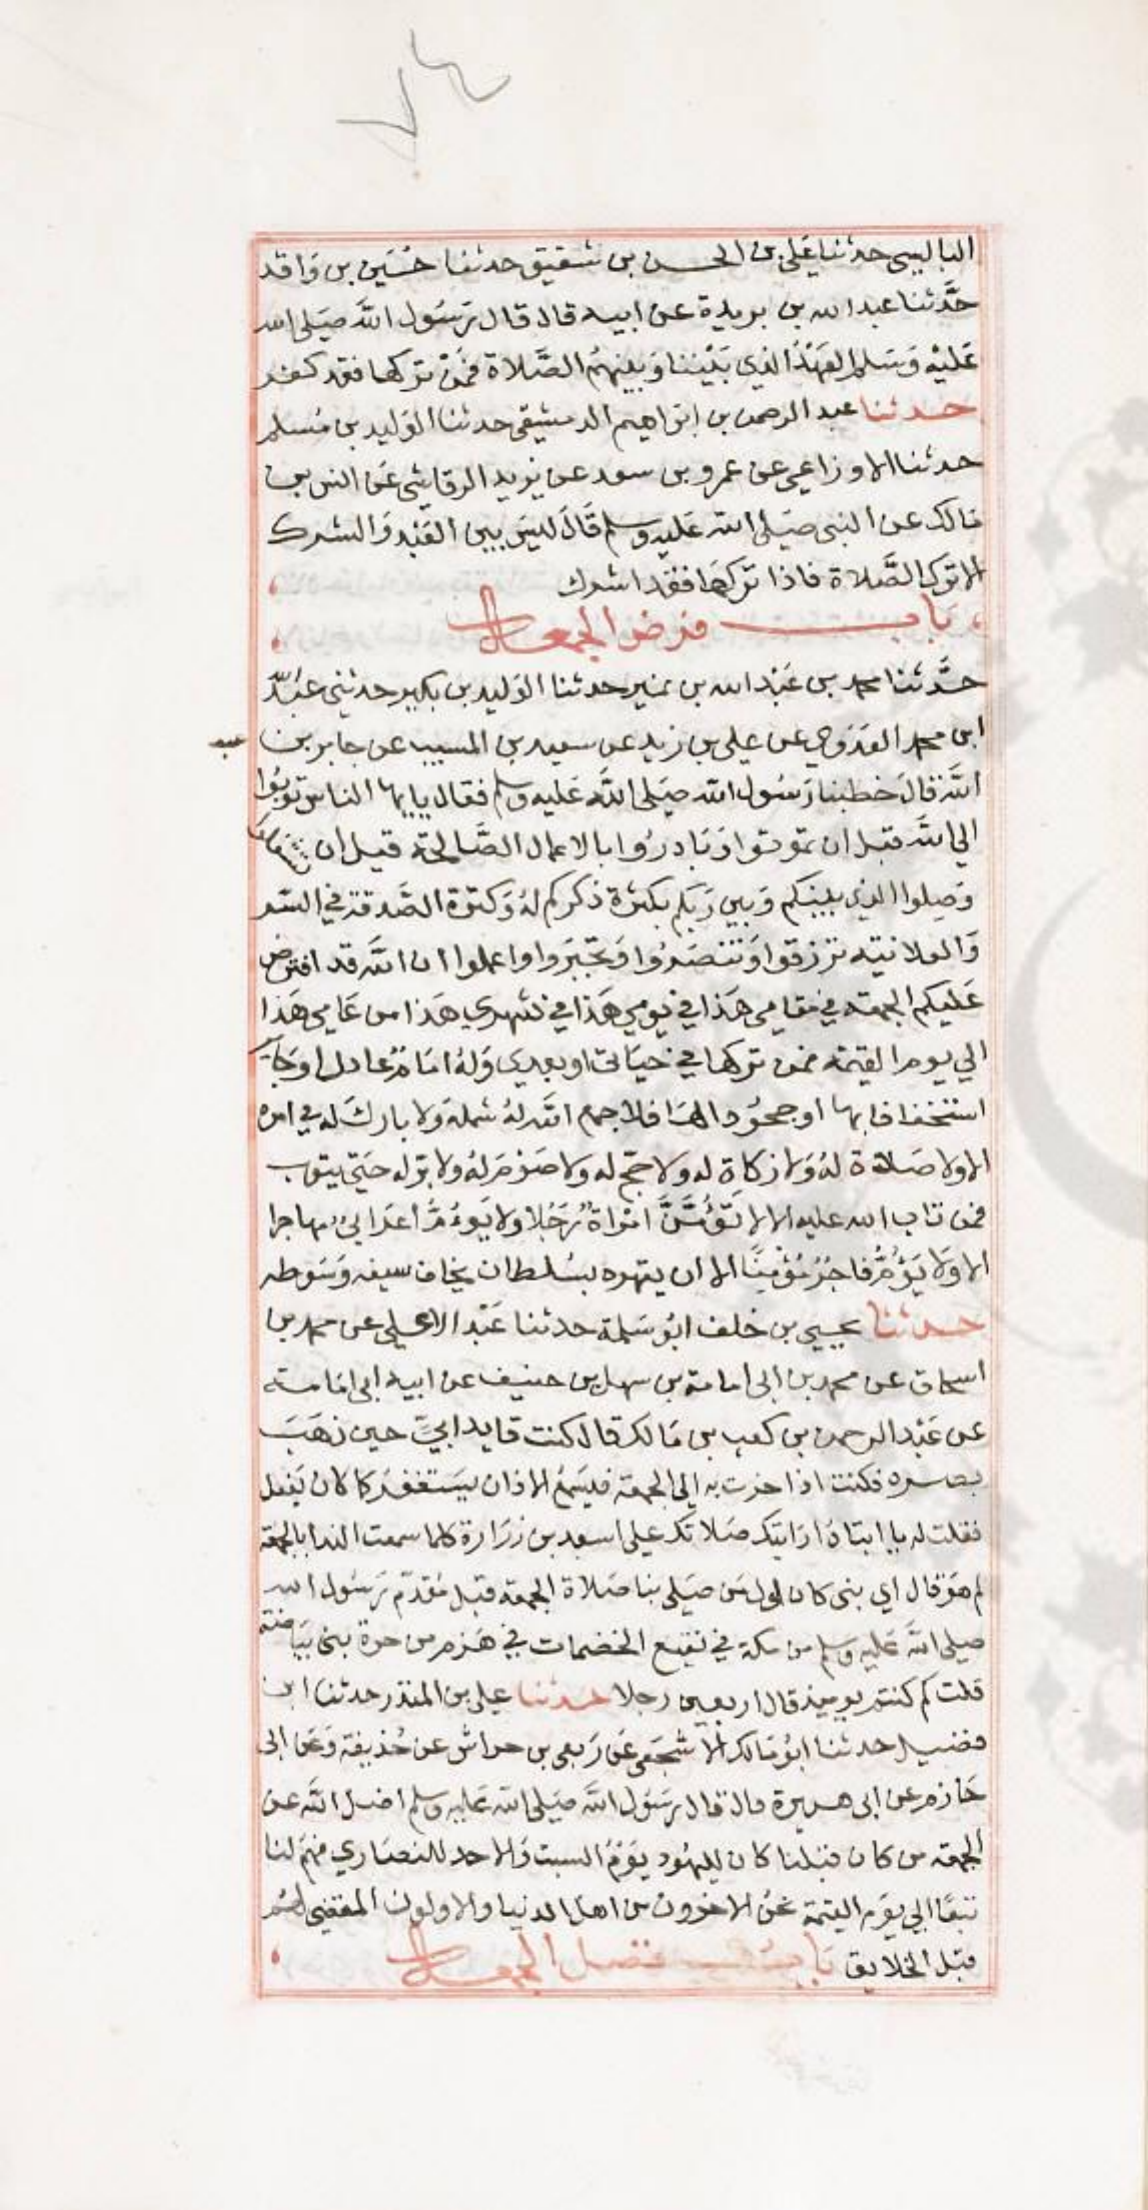 البالسي حدثنا عَلي بن الحسن بن شقيق حدثنا حُسَين بن وَاقد
حدَّثنا عبد الله بن بريدة عن ابيه قال قال رَسُول اللَّه صَلى الله
عَليْه وَسَلم العهْدُ الذي بَيْننا وَبينهمُ الصَّلاة فمَنْ تركها فقد كفر
حدثنا عبد الرحمن بن ابرَاهيم الدمشقي حدثنا الوَليد بن مُسلم
حدثنا الاوزاعي عن عمرو بن سعد عن يزيد الرقاشي عَن انس بن
مَالك عن النبي صَلى الله عَليه وسلم قَالَ ليسَ بين العَبْد وَالشرك
الا ترك الصَّلاة فاذا تَركهَا فقد اشرك
بَاب فرض الجمعة
حدَّثنا محمد بن عَبْد الله بن نمير حدثنا الوَليد بن بكير حدثني عبْد الله
ابن محمد العَدَوي عن علي بن زيد عن سعيد بن المسيب عن جابر بن عبد
اللَّه قالَ خطبنا رَسُول الله صَلى اللَّه عَليه وسلم فقال يا يها الناس توبُوا
الي اللَّه قبل ان تموتوا وَبَادرُوا بالاعمال الصَّالحة قبل ان تشغلوا
وَصِلوا الذي بينكم وَبين رَبكم بكثرة ذكركم لهُ وَكثرة الصَّدقة في السّر
وَالعلانية ترزقوا وَتنصَرُوا وَتجبَروا واعملوا ان اللَّه قد افترض
عَليكم الجمعة في مقامي هَذا في يَومي هَذا في شهري هَذا من عَامي هَذا
الي يوم القيمة فمن تركها في حيَاتي او بعدي وَلهُ امَامٌ عادل او جَائر
استخفافا بها او جحوُدا لهَا فلا جمع اللَّه لهُ شمله وَلا بارك له في امره
الا ولا صَلاة لهُ وَلا زكاة له ولا حجّ له ولا صَوْمَ لهُ ولا برّ له حَتي يتوب
فمن تاب تاب الله عليه الا لا تَؤُمَّنَّ امْراة رَجُلا ولا يَؤمُّ اعرَابيٌّ مهاجرا
الا وَلا يَؤُمُّ فاجرٌ مُؤْمِنًا الا ان يقهره بسُلطان يخاف سيفه وَسَوطه
حدثنا يحيي بن خلف ابُو سَلمة حدثنا عَبْد الاعلي عن محمد بن
اسحاق عن محمد بن ابي امامة بن سهل بن حنيف عن ابيه ابي امَامة
عن عَبْد الرحمن بن كعب بن مَالك قال كنت قايد ابيَّ حين ذهَبَ
بصره فكنت اذا خرجت به الي الجمعة فسَمعَ الاذان يسَتغفرَ كما كان يَفعل
فقلت له يا ابتاهُ ارَايتك صَلاتك علي اسعد بن زرَارة كلما سمعت الندا بالجمعة
لم هوَ قال اي بني كان اول مَن صَلي بنا صَلاة الجمعة قبل مَقدَم رَسُول الله
صلي اللَّه عَليه وَسلم من مكة في نقيع الخضمات في هَزم من حرة بني بَيَاضة
قلت كم كنتم يوميذ قال اربعين رجلا حدثنا علي بن المنذر حدثنا ابن
فضيل حدثنا ابُو مَالك الاشجَعي عَن رَبعي بن حراش عن حُذيفة وَعَن ابي
حَازم عن ابي هريرة قال قال رَسَوُل اللَّه صَلى الله عَليه وسلم اضل اللَّه عن
الجمعة من كان قبلنا كان لليهُود يَوْمُ السبت وَالاحد للنصَاري فهمْ لنا
تبعًا الي يَوم القيمة نحنُ الاخرون من اهل الدنيا والاولون المقضي لهُم
قبل الخلايق بَابُ فضل الجمعة